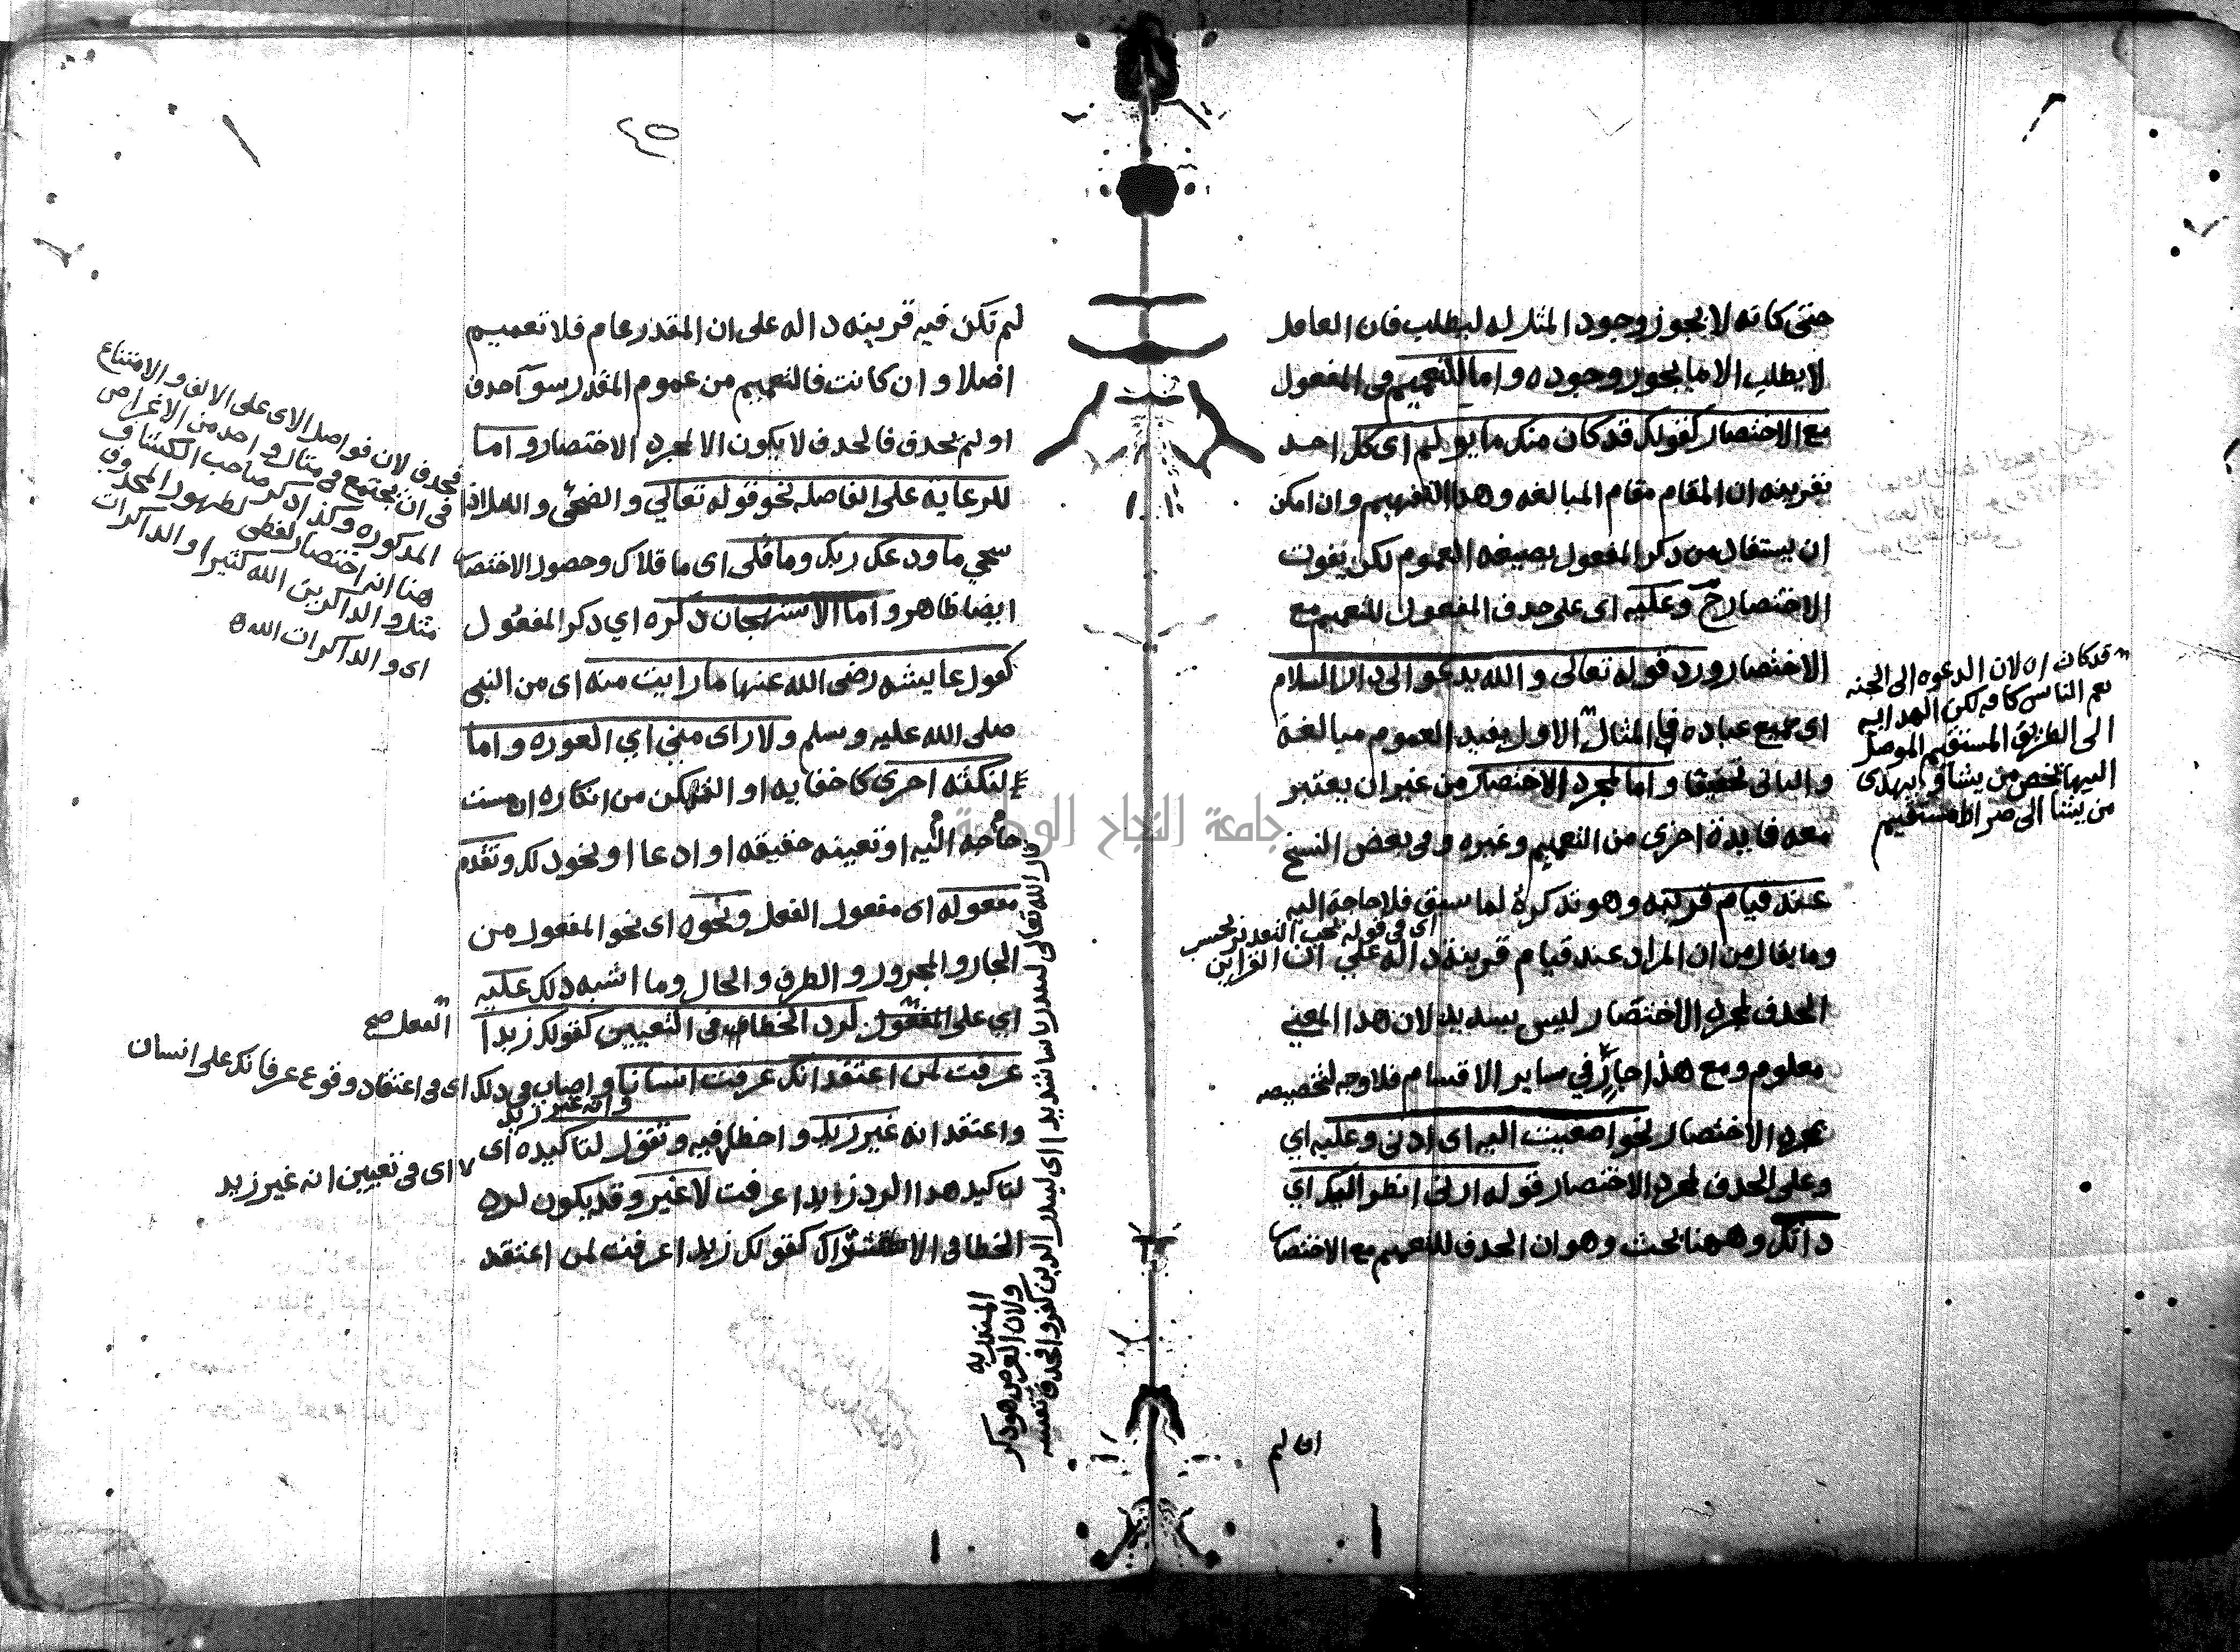 حتى كانه لا يجوز وجود المثل له ليطلب فان العامل
لا يطلب الا ما يجوز وجوده واما للتعميم فى المفعول
مع الاختصار كقولك قد كان منك ما يولم اى كل احد
بقرينه ان المقام مقام المبالغه وهذا التعميم وان امكن
ان يستفاد من ذكر المفعول بصيغه العموم لكن يفوت
الاختصار ح وعليه اى على حذف المفعول للتعميم مع
الاختصار ورد قوله تعالى والله يدعو الى دار السلام
اى جميع عباده فالمثال الاول يفيد العموم مبالغة
والثانى تحقيقا واما لمجرد الاختصار من غير ان يعتبر
معه فايدة اخرى من التعميم وغيره وفى بعض النسخ
عند قيام قرينه وهو تذكرة لما سبق فلا حاجة اليه
وما يقال من ان المراد عند قيام قرينة داله على ان
الحذف لمجرد الاختصار ليس بسديد لان هذا المعنى
معلوم ومع هذا جار في ساير الاقسام فلا وجه لتخصيصه
بمجرد الاختصار نحو اصغيت اليه اى اذنى وعليه اي
وعلى الحذف لمجرد الاختصار قوله ارنى انظر اليك اي
ذاتك وههنا بحث وهو ان الحذف للتعميم مع الاختصا
اى فى قوله يجب التقدير بحسب
القراين
قد كان اه لان الدعوه الى الجنه
يعم الناس كافه لكن الهدايه
الى الطريق المستقيم الموصل
اليها تخص من يشاء ويهدى
من يشا الى صراط مستقيم
ان لم
٤٥
لم تكن فيه قرينه داله على ان المقدر عام فلا تعميم
اصلا وان كانت فالتعميم من عموم المقدر سوآ حذف
او لم يحذف فالحذف لا يكون الا لمجرد الاختصار واما
للرعاية على الفاصله نحو قوله تعالي والضحى والليل اذا
سجي ما ودعك ربك وما قلى اى ما قلاك وحصول الاختصا
ايضا ظاهر واما الاستهجان ذكره اي ذكر المفعول
كقول عايشه رضى الله عنها ما رايت منه اى من النبى
صلى الله عليه وسلم ولا راى منى اي العوره واما
لنكته اخرى كاخفايه او التمكن من انكاره ان مست
حاجة اليه او تعينه حقيقه او ادعا او نحو ذلك وتقدم
مفعوله اى مفعول الفعل ونحوه اى نحو المفعول من
الجار والمجرور والظرف والحال وما اشبه ذلك عليه
اي على المفعول لرد الخطا فى التعيين كقولك زيدا
عرفت لمن اعتقد انك عرفت انسانا واصاب فى ذلك
واعتقد انه غير زيد واخطا فيه وتقول لتاكيده اى
لتاكيد هذا الرد زيدا عرفت لا غير وقد يكون لرد
الخطا فى الاشتراك كقولك زيدا عرفت لمن اعتقد
فحذف لان فواصل الاى على الالف والامتناع
فى ان يجتمع فى مثال واحد من الاغراض
المذكوره وكذا ذكر صاحب الكشاف
هنا انه اختصار لفظى لظهور المحذوف
مثل والذاكرين الله كثيرا والذاكرات
اى والذاكرات الله
الفعل صح
اى فى اعتقاد وقوع عرفانك على انسان
وانه غير زيد
اى فى تعيين انه غير زيد
قال الله تعالى لينذر باسا شديدا اى لينذر الذين كفروا فحذف
ولان الغرض هو ذكر
المنذر به
جامعة النجاح الوطنية